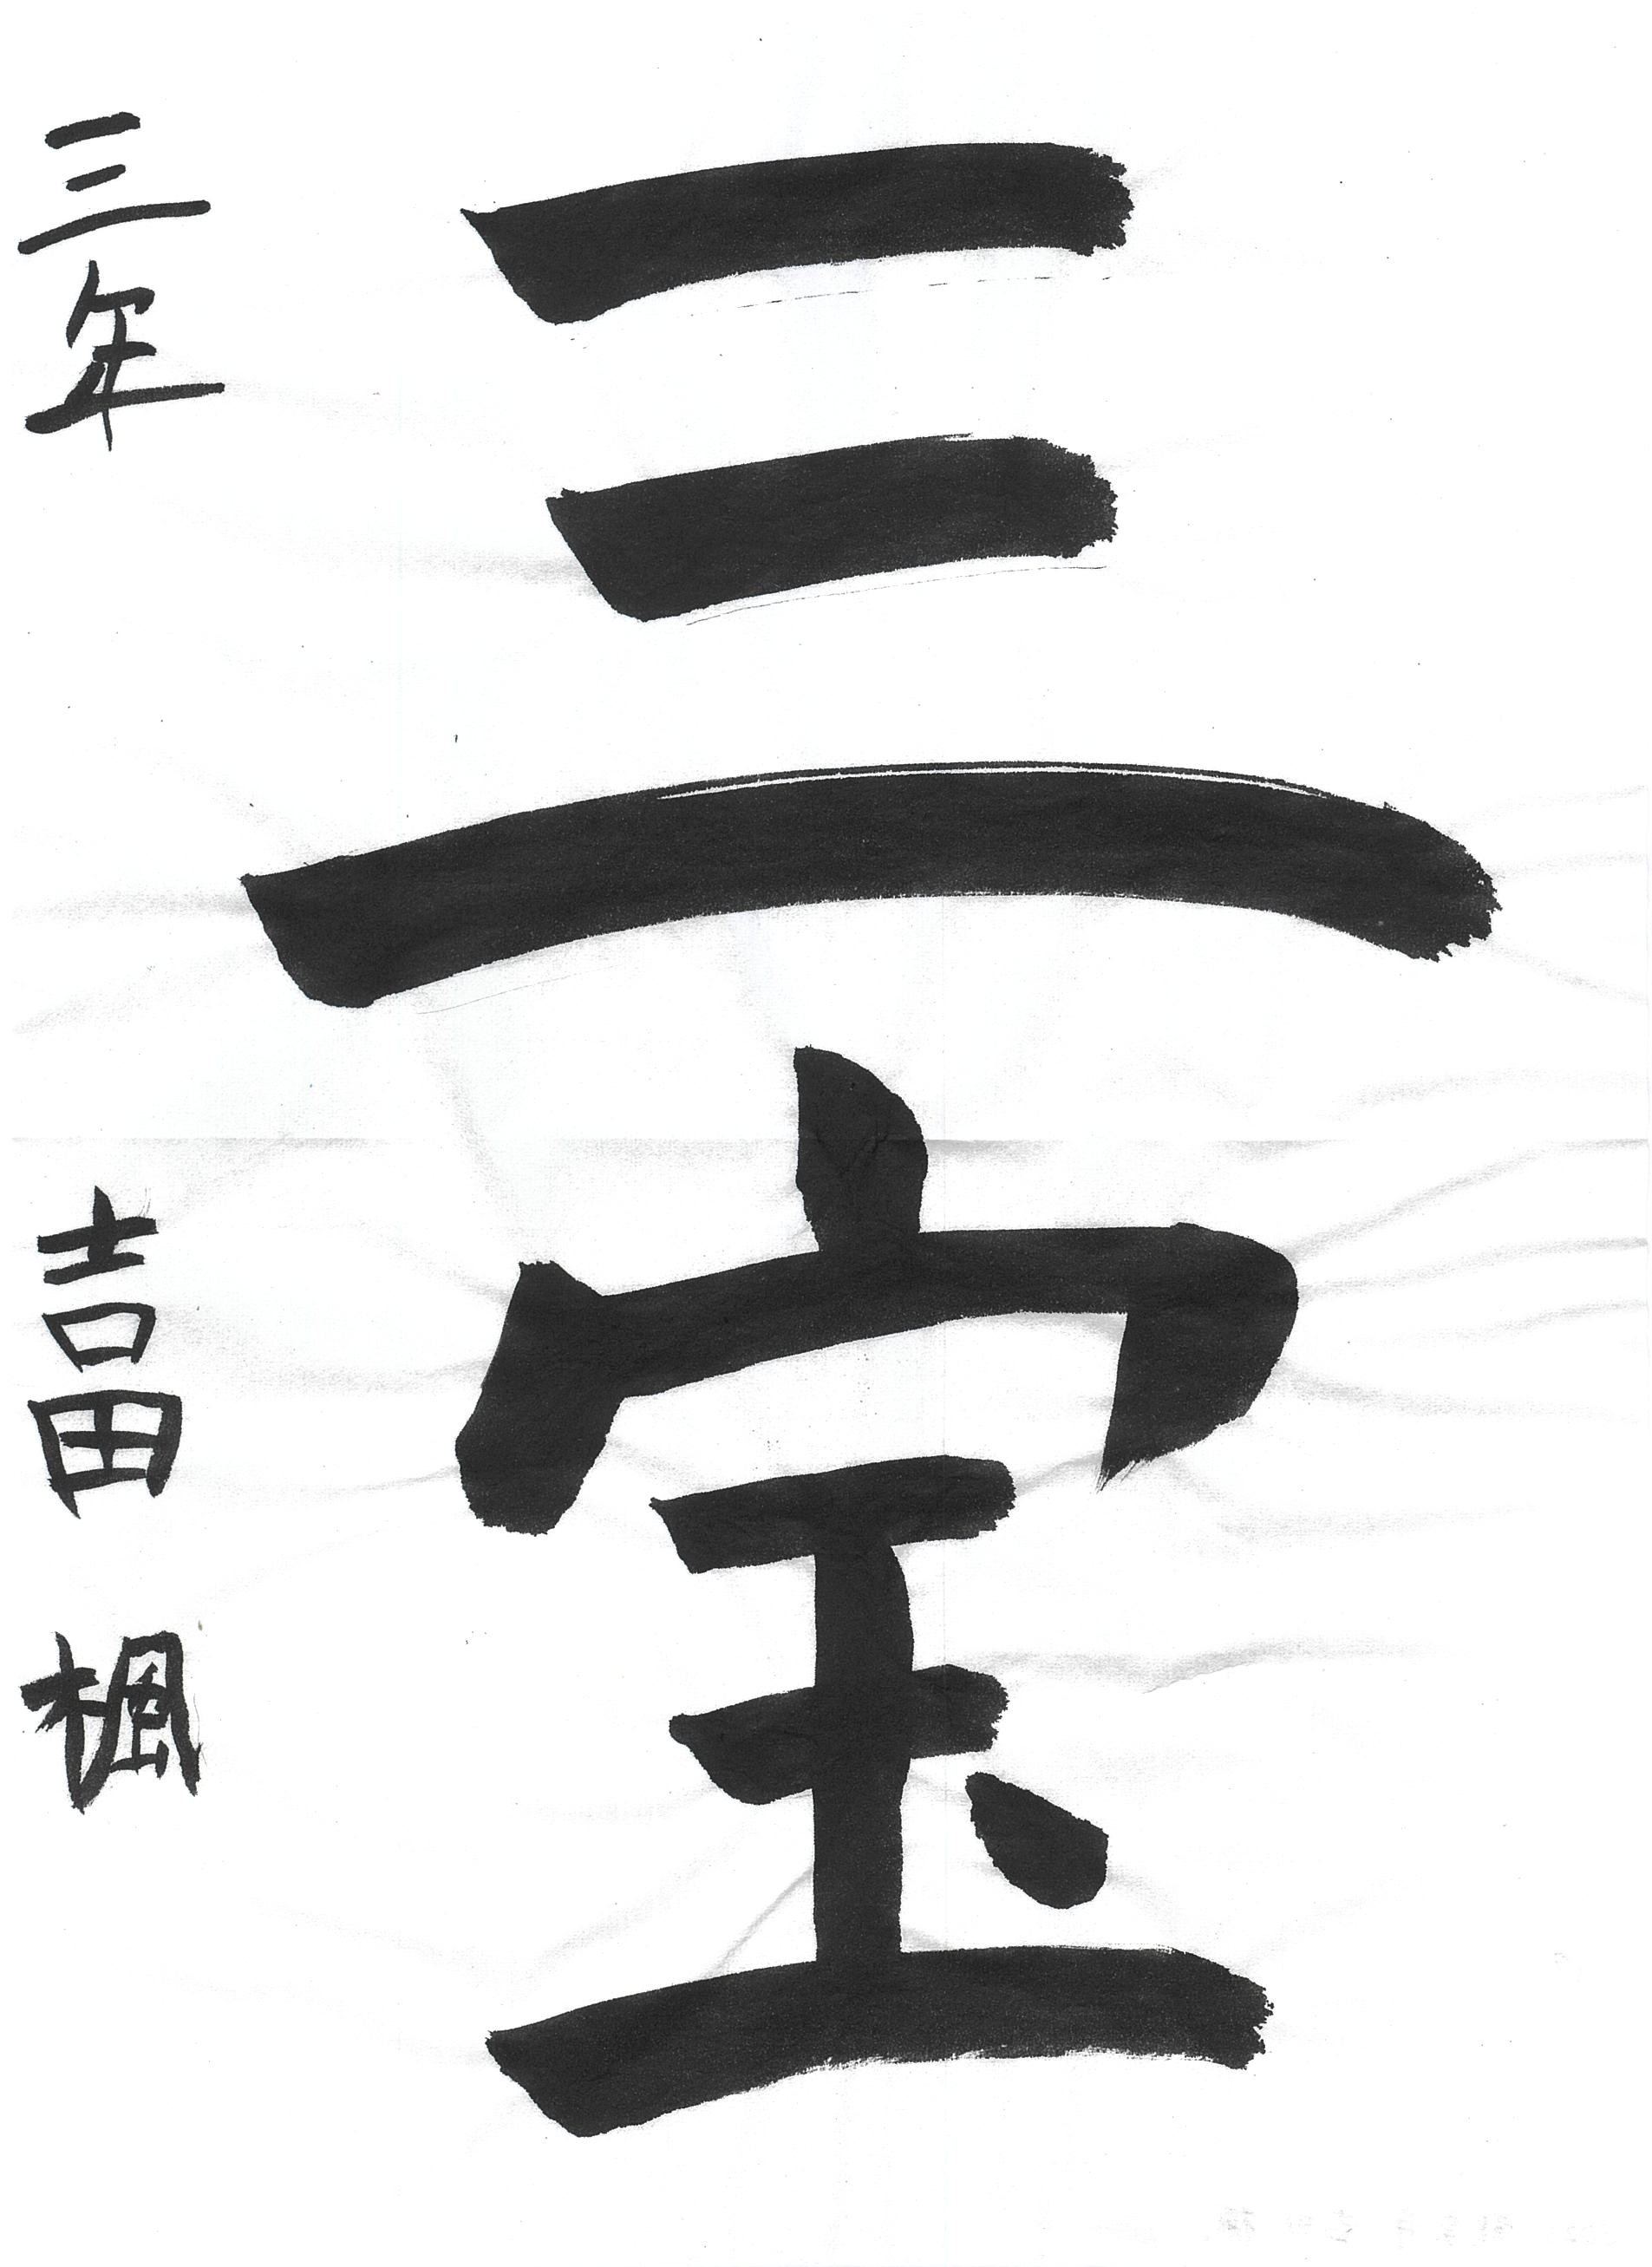 三宝
三年 吉田 楓